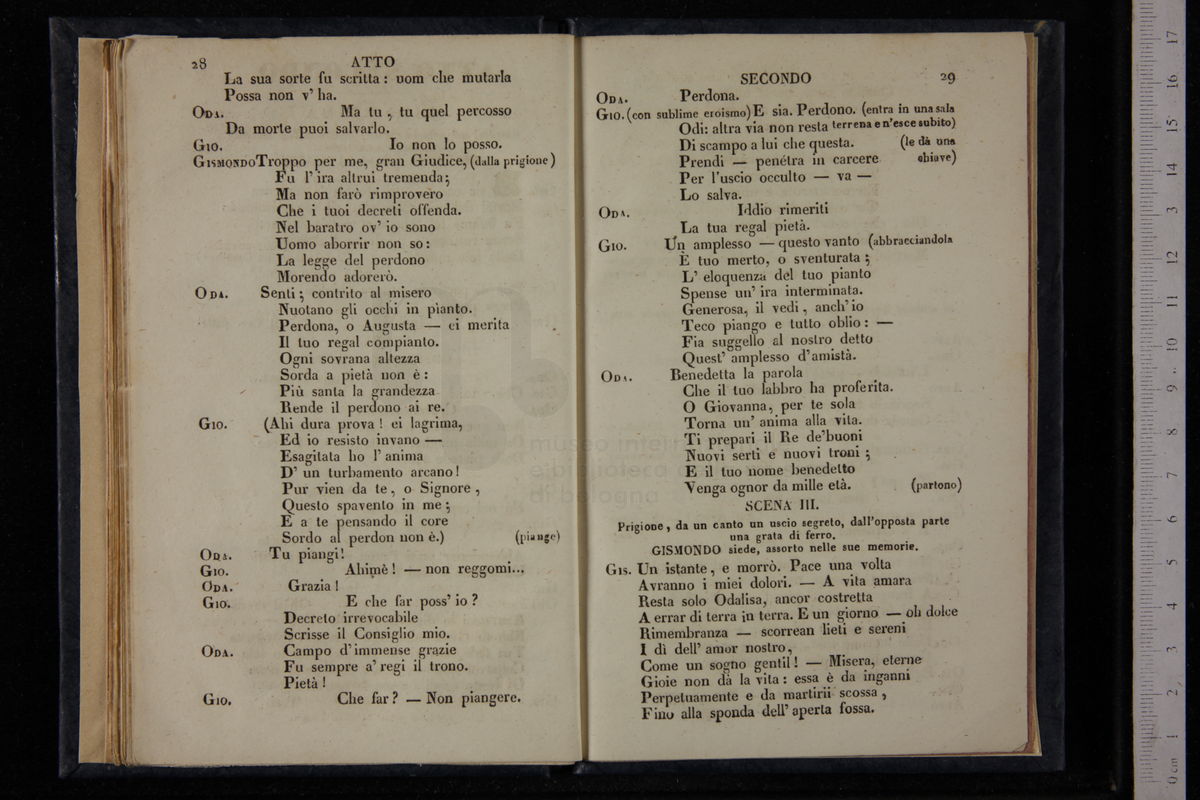 28 ATTO
La sua sorte fu scritta : uom che mutarla
Possa non v' ha.
ODA. Ma tu , tu quel percosso
Da morte puoi salvarlo.
GIO. Io non lo posso.
GISMONDO Troppo per me, gran Giudice, (dalla prigione)
Fu l' ira altrui tremenda ;
Ma non farò rimprovero
Che i tuoi decreti offenda.
Nel baratro ov' io sono
Uomo aborrir non so :
La legge del perdono
Morendo adorerò.
ODA. Senti ; contrito al misero
Nuotano gli occhi in pianto.
Perdona, o Augusta — ei merita
Il tuo regal compianto.
Ogni sovrana altezza
Sorda a pietà non è :
Più santa la grandezza
Rende il perdono ai re.
GIO. (Ahi dura prova ! ei lagrima,
Ed io resisto invano —
Esagitata ho l' anima
D' un turbamento arcano !
Pur vien da te , o Signore ,
Questo spavento in me ;
E a te pensando il core
Sordo al perdon non è.) (piange)
ODA. Tu piangi !
GIO. Ahimè ! — non reggomi...
ODA. Grazia !
GIO. E che far poss' io ?
Decreto irrevocabile
Scrisse il Consiglio mio.
ODA. Campo d' immense grazie
Fu sempre a' regi il trono.
Pietà !
GIO. Che far ? — Non piangere.
SECONDO 29
ODA. Perdona.
GIO. (con sublime eroismo) E sia. Perdono. (entra in una sala
Odi: altra via non resta terrena e n'esce subito)
Di scampo a lui che questa. (le dà una
Prendi — penétra in carcere chiave)
Per l'uscio occulto — va —
Lo salva.
ODA. Iddio rimeriti
La tua regal pietà.
GIO. Un amplesso — questo vanto (abbracciandola
È tuo merto, o sventurata ;
L' eloquenza del tuo pianto
Spense un' ira interminata.
Generosa, il vedi , anch' io
Teco piango e tutto oblio : —
Fia suggello al nostro detto
Quest' amplesso d'amistà.
ODA. Benedetta la parola
Che il tuo labbro ha proferita.
O Giovanna, per te sola
Torna un' anima alla vita.
Ti prepari il Re de'buoni
Nuovi serti e nuovi troni ;
E il tuo nome benedetto
Venga ognor da mille età. (partono)
SCENA III.
Prigione , da un canto un uscio segreto, dall'opposta parte
una grata di ferro.
GISMONDO siede, assorto nelle sue memorie.
GIS. Un istante , e morrò. Pace una volta
Avranno i miei dolori. — A vita amara
Resta solo Odalisa, ancor costretta
A errar di terra in terra. E un giorno — oh dolce
Rimembranza — scorrean lieti e sereni
I dì dell' amor nostro ,
Come un sogno gentil ! — Misera, eterne
Gioie non dà la vita : essa è da inganni
Perpetuamente e da martirii scossa ,
Fino alla sponda dell' aperta fossa.
di bologna
0 cm 1 2 3 4 5 6 7 8 9 10 11 12 13 14 15 16 17